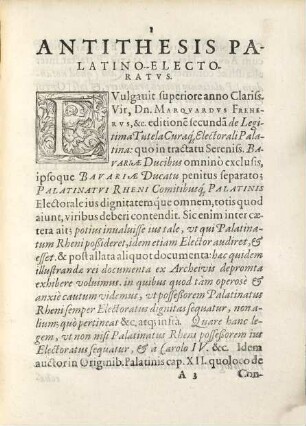 1
ANTITHESIS PA-
LATINO-ELECTO-
RATVS.
EVulgauit superiore anno Clariss.
Vir, Dn. MARQVARDVS FREHE-
RVS, &c. editionẽ secundã de Legi
tima Tutela Curaq́, Electorali Palati-
na: quo in tractatu Sereniss. BA-
VARIÆ Ducibus omninò exclusis,
ipsoque BAVARIÆ Ducatu penitus separato;
PALATINATVI RHENI Comitibusq́, PALATINIS
Electorale ius dignitatem que omnem, totis quod
aiunt, viribus deberi contendit. Sic enim inter cæ-
tera ait; potius inualuisse ius tale, vt qui Palatina-
tum Rheni possideret, idem etiam Elector audiret, &
esset. & post allata aliquot documenta: hac quidem
illustrandæ rei documenta ex Archeivis deprompta
exhibere volumus. in quibus quod tam operosè &
anxiè cautum videmus, vt possessorem Palatinatus
Rheni semper Electoratus dignitas sequatur, non a-
lium, quò pertineat &c. atq́, infrà. Quare hanc le-
gem, vt non nisi Palatinatus Rheni possessorem ius
Electoratus sequatur, & à Carolo IV. &c. Idem
auctor in Originib. Palatinis cap. XII. quo loco de
A 3
Con-